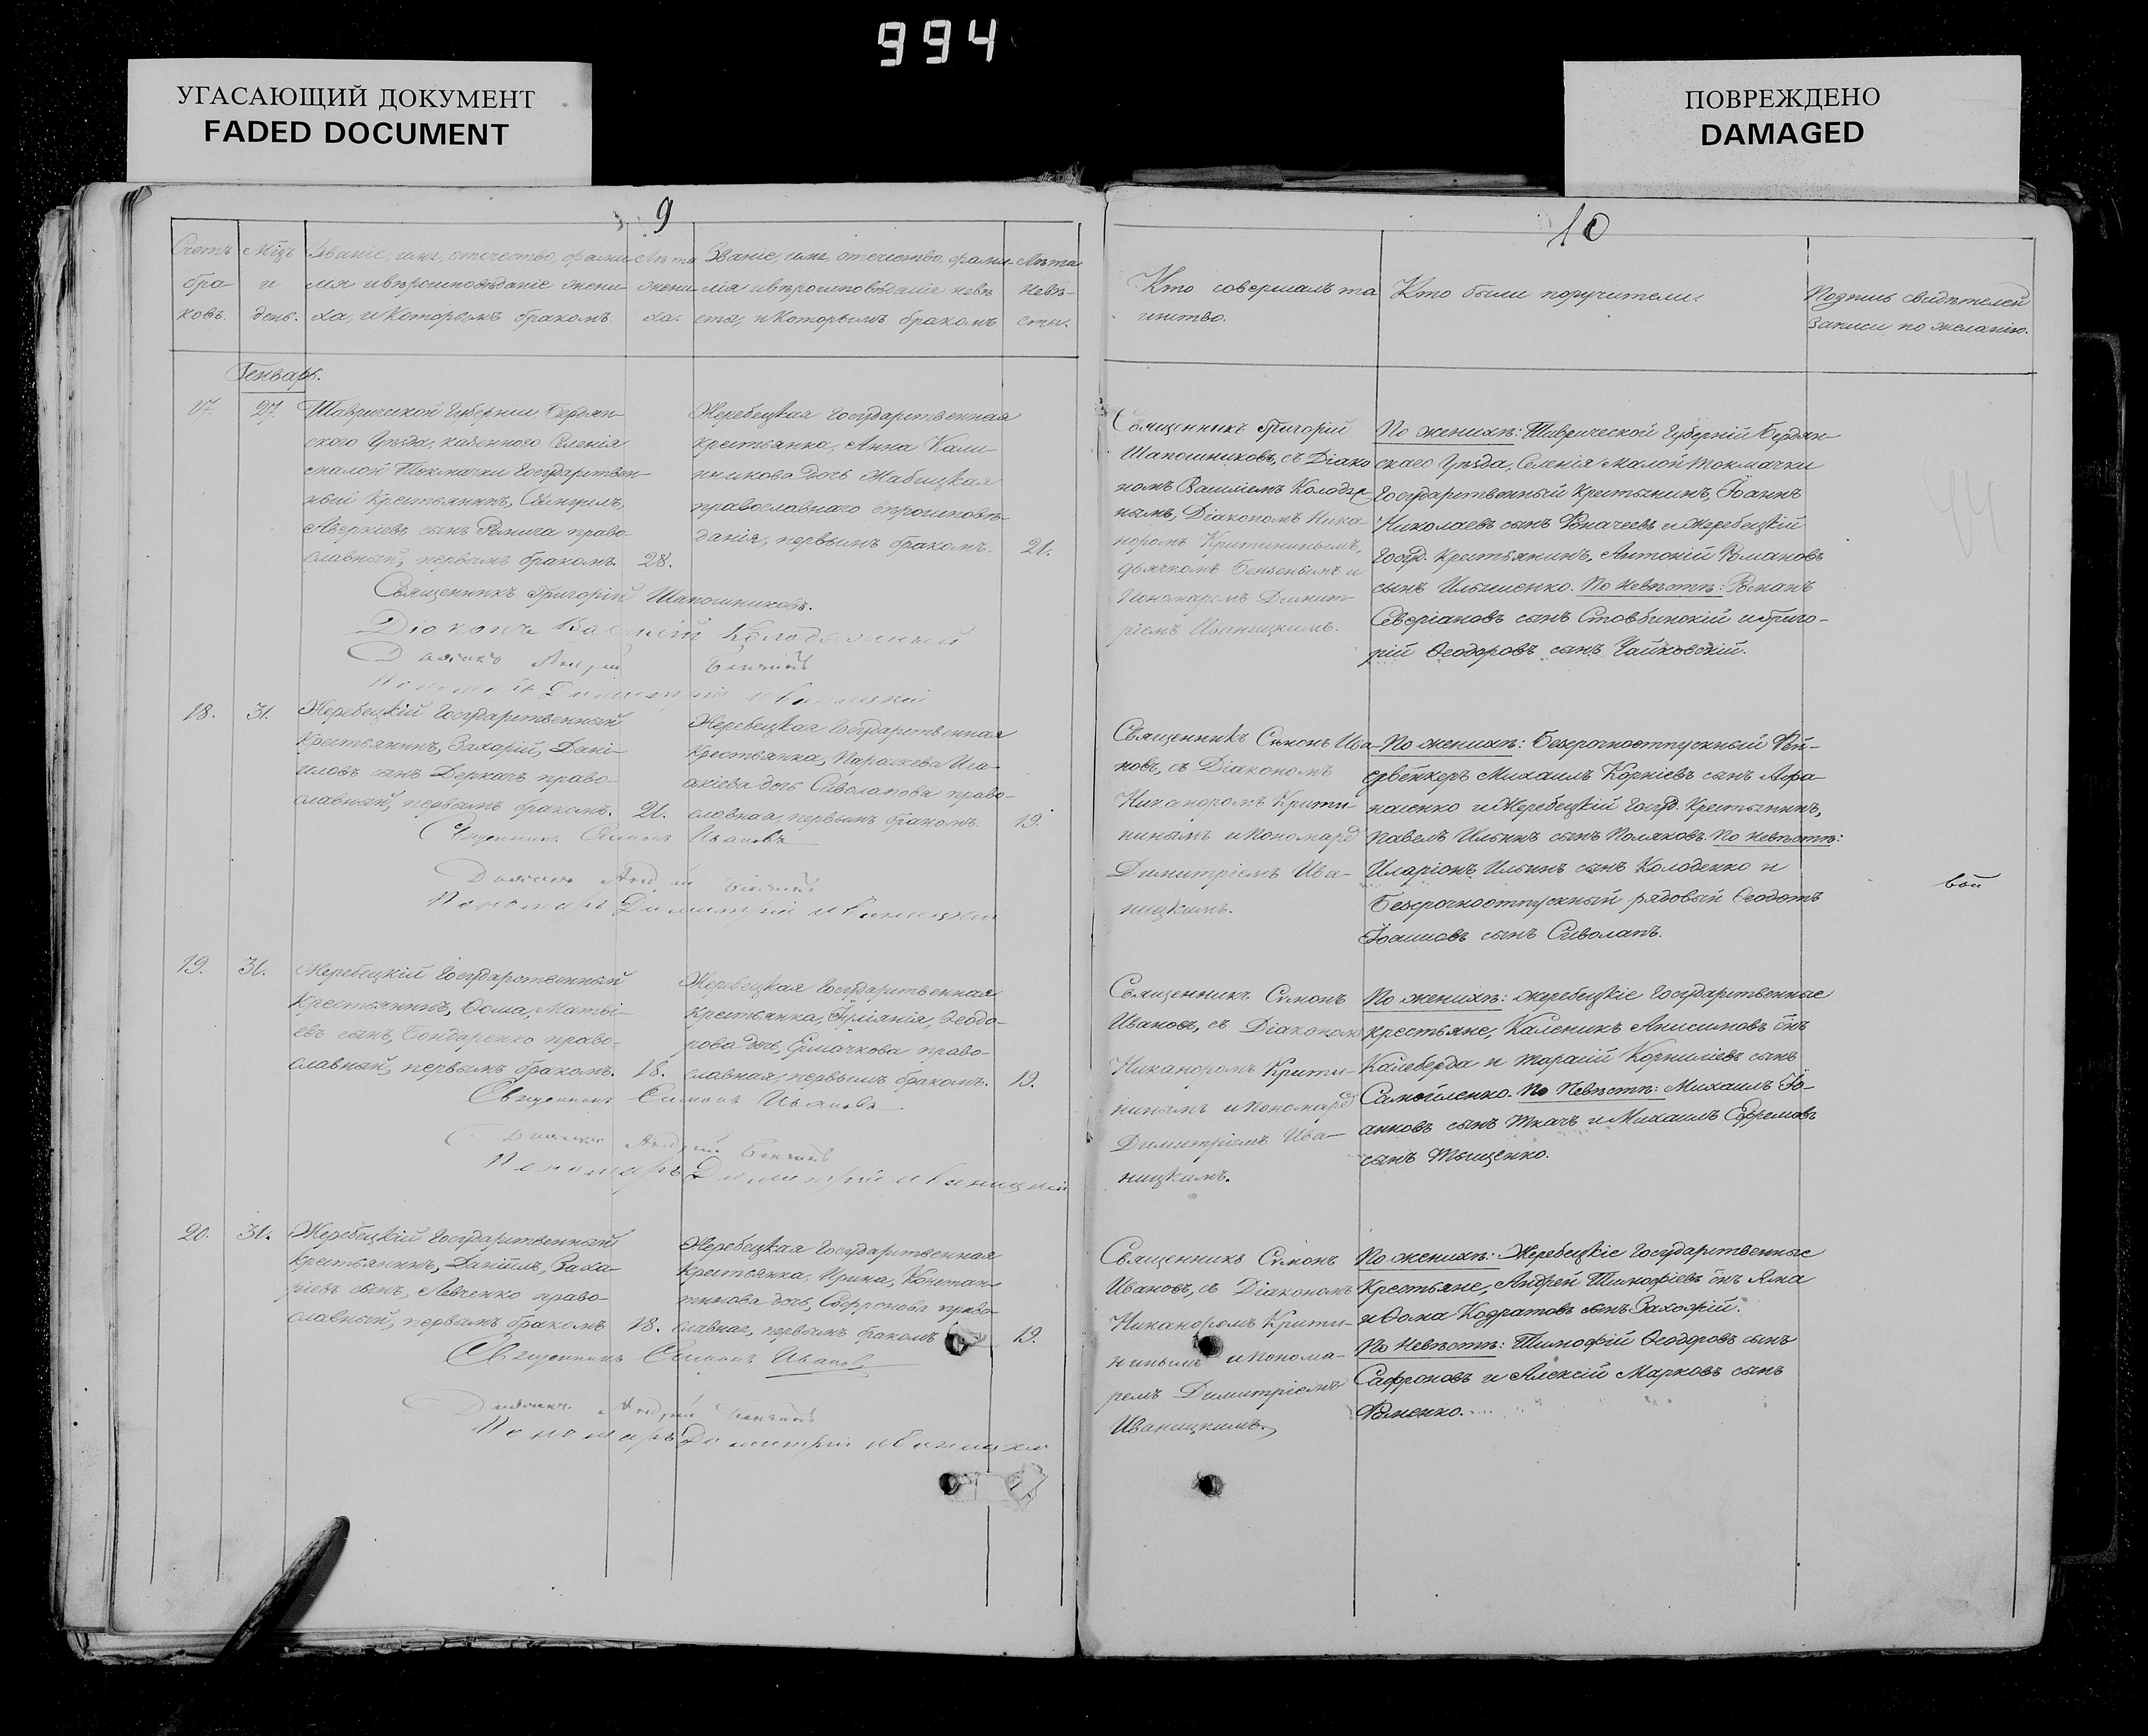 994
УГАСАЮЩИЙ ДОКУМЕНТ
FADED DOCUMENT
ПОВРЕЖДЕНО
DAMAGED
9
Счетъ
бра-
ковъ.
Мѣцъ
и
день.
Званіе, имя, отечество, фами-
лія и вѣроисповѣданіе жени-
ха, и которымъ бракомъ.
Лѣта
жени-
ха.
Званіе, имя, отечество, фами-
лія и вѣроисповѣданіе невѣ
сты, и которымъ бракомъ
Лѣта
невѣ-
сты.
Генварь.
17.
27.
Таврической Губерніи Бердян-
скаго Уѣзда, казеннаго Селенія
малой Токмачки Государствен-
ный Крестьянинъ, Самуилъ,
Аверкіевъ сынъ право
славный, первымъ бракомъ.
28.
Жеребецкая Государственная
крестьянка, Анна Кали
никова дочь
православнаго вѣроисповѣ-
данія, первымъ бракомъ.
21.
Священникъ Григорій Шапошниковъ.
Діаконъ Василій Колодяжный
Дьячокъ Андрей
Пономарь Димитрій Иваницкій
18.
31.
Жеребецкій Государственный
Крестьянинъ, Захарій, Дані-
иловъ сынъ Деркачъ право-
славный, первымъ бракомъ.
21.
Жеребецкая Государственная
Крестьянка, Параскева Иса-
акіева дочь Сиволапова право-
славная, первымъ бракомъ.
19.
Священникъ Симонъ Ивановъ
Дьячокъ Андрей
Пономарь Димитрій Иваницкій
19.
31.
Жеребецкій Государственный
Крестьянинъ, Ѳома, Матві-
евъ сынъ, Бондаренко право-
славный, первымъ бракомъ.
18.
Жеребецкая Государственная
Крестьянка, Іуліянія, Ѳеодо-
рова дочь, Ермачкова право-
славная, первымъ бракомъ.
19.
Священникъ Симонъ Ивановъ
Дьячокъ Андрей
Пономарь Димитрій Иваницкій
20.
31.
Жеребецкій Государственный
Крестьянинъ, Даніилъ, Заха-
ріевъ сынъ, Левченко право-
славный, первымъ бракомъ
18.
Жеребецкая Государственная
Крестьянка, Ирина, Констан-
тинова дочь, Сафронова право-
славная, первымъ бракомъ
19.
Священникъ Симонъ Ивановъ
Дьячокъ Андрей
Пономарь Димитрій Иваницкій
10
Кто совершалъ та
инство.
Кто были поручители.
Подпись свидѣтелей
записи по желанію.
Священникъ Григорій
Шапошниковъ, съ Діако
номъ Василіемъ Колодяж
нымъ, Діакономъ Ника-
норомъ Критининымъ,
дьячкомъ и
Пономаремъ Димит-
ріемъ Иваницкимъ.
По женихѣ: Таврической Губерніи Бердян-
скаго Уѣзда, Селенія Малой Токмачки
Государственный Крестьянинъ, Іоаннъ
Николаевъ сынъ и Жеребецкій
Госуд. Крестьянинъ, Антоній Романовъ
сынъ Ильяшенко. По невѣстѣ: Романъ
Северіановъ сынъ Стовбинскій и Григо-
рій Ѳеодоровъ сынъ Чайковскій.
Священникъ Симонъ Ива-
новъ, съ Діакономъ
Никаноромъ Крити-
нинымъ и пономаре
Димитріемъ Ива-
ницкимъ.
По женихѣ: Безсрочноотпускный Фей-
ервейкеръ Михаилъ Корніевъ сынъ Афа-
насенко и Жеребецкій Госуд. Крестьянинъ,
Павелъ Ильинъ сынъ Поляковъ. По невѣстѣ:
Иларіонъ Ильинъ сынъ Колоденко и
Безсрочноотпускный рядовый Ѳеодотъ
Іоанновъ сынъ Сиволапъ.
Священникъ Симонъ
Ивановъ, съ Діакономъ
Никаноромъ Крити-
нинымъ и пономаре
Димитріемъ Ива-
ницкимъ.
По женихѣ: Жеребецкіе Государственные
крестьяне, Каленикъ Анисимовъ снъ
Калеберда и Тарасій Корниліевъ сынъ
Самойленко. По Невѣстѣ: Михаилъ Іо-
анновъ сынъ Ткачъ и Михаилъ Ефремовъ
сынъ Тыщенко.
Священникъ Симонъ
Ивановъ, съ Діакономъ
Никаноромъ Крити-
нинымъ и понома-
ремъ Димитріемъ
Иваницкимъ.
По женихѣ: Жеребецкіе Государственные
Крестьяне, Андрей Тимофіевъ снъ Яма
и Ѳома Кодратовъ сынъ
По Невѣстѣ: Тимофій Ѳеодоровъ сынъ
Сафроновъ и Алексій Марковъ сынъ
Фоменко.